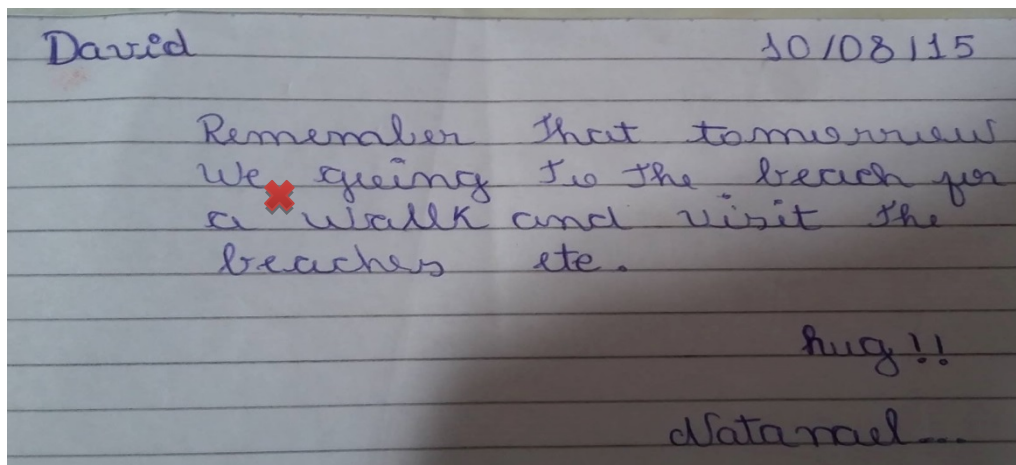 David 10/08/15
Rememember that tomorrow
We going to the beach for
a wallk and visit the
beaches etc.
hug!!
Natanael...